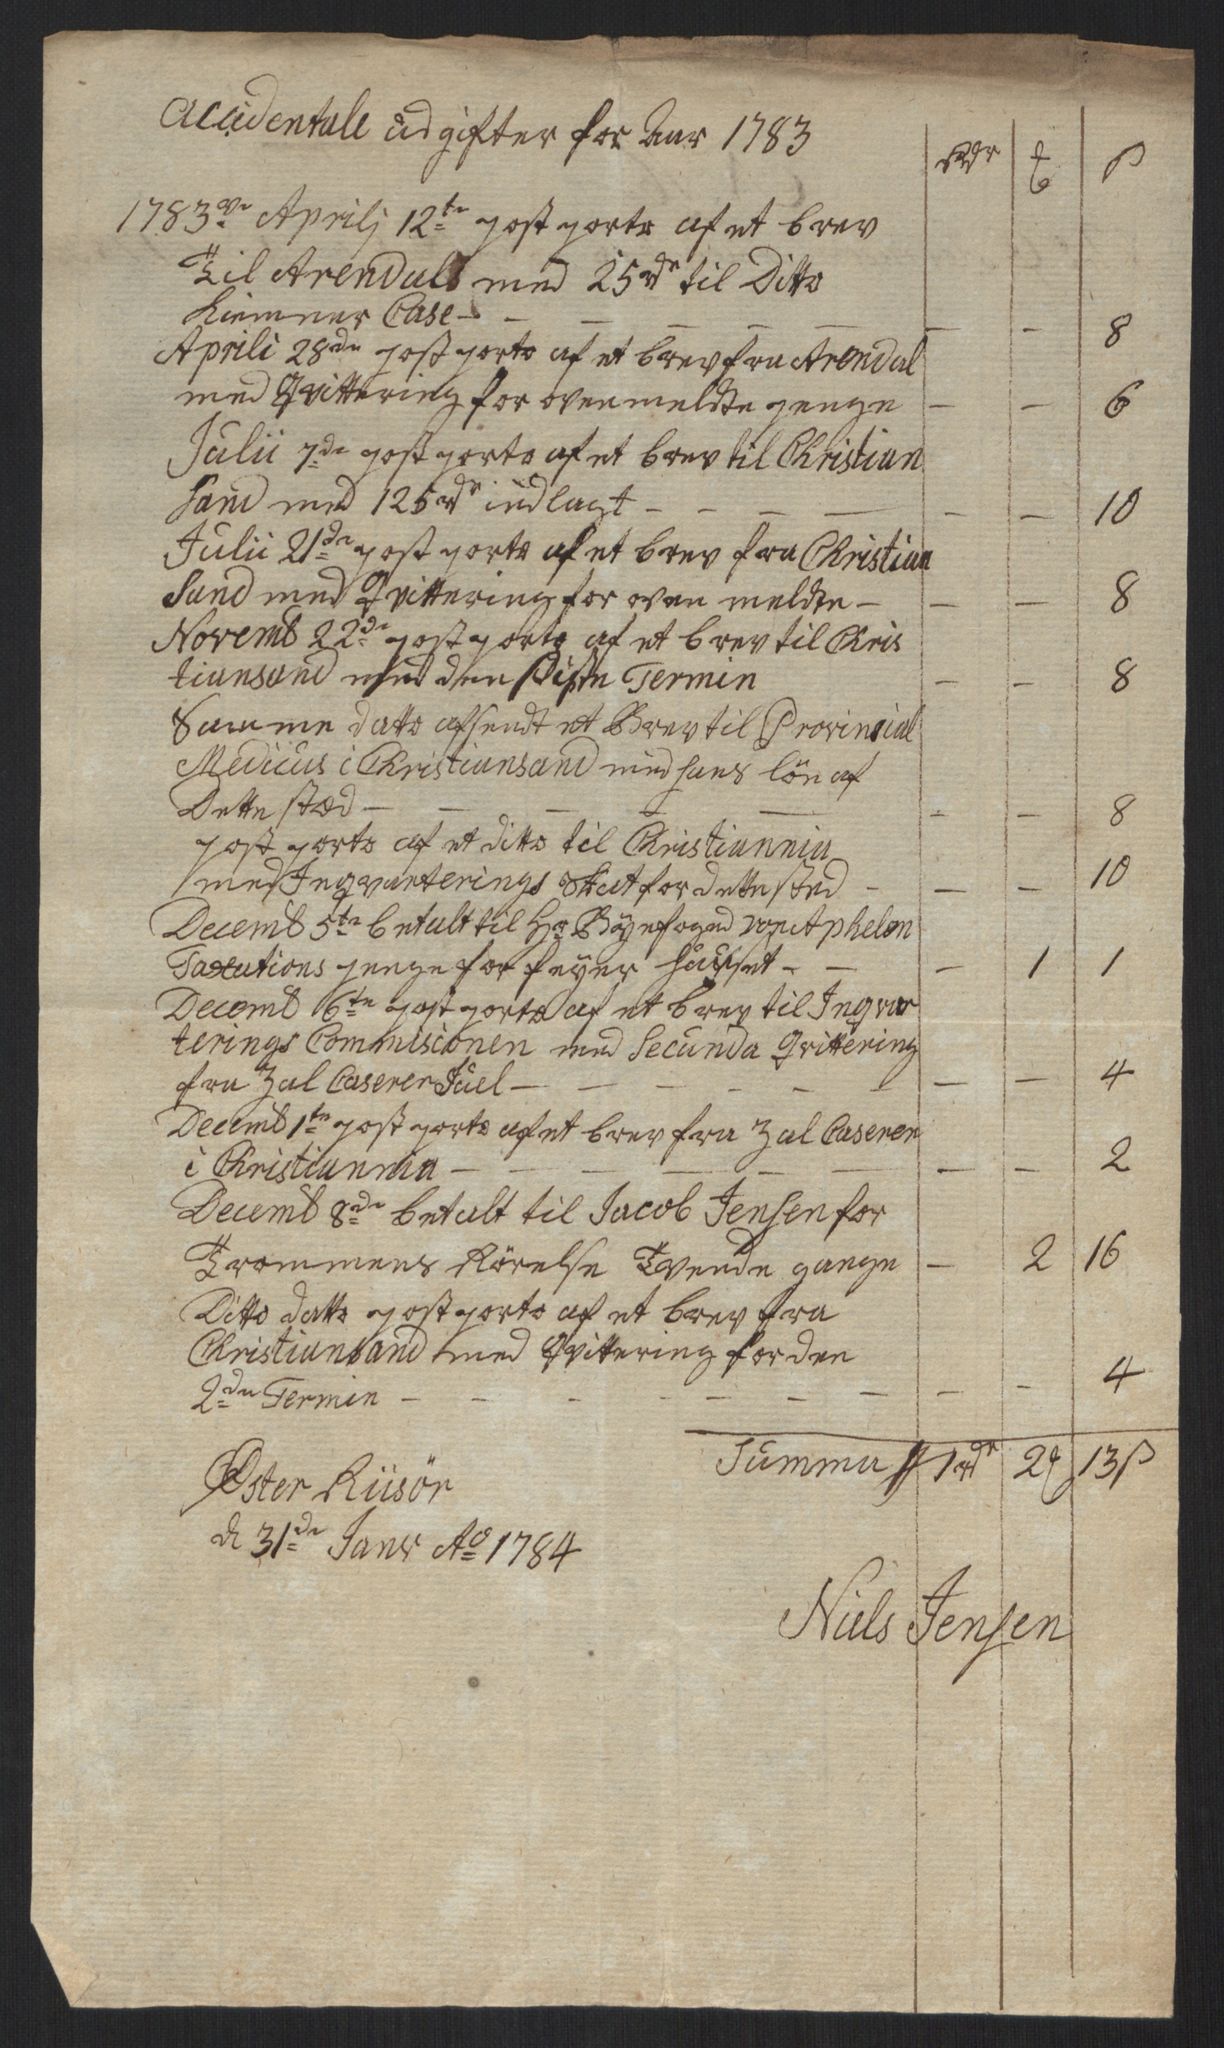 Accidentale udgifter for Aar 1783
Rdr ß
1783 Aprilj 12te post porto af et brev
Til Arendals med 25 rdr til Ditto
Kiemner Case - - - - - - - - 8
Aprili 28de post porto af et brev fra Arendal
med Qvittering for ovenmeldte penge - - 6
Julii 7de post porto af et brev til Christian
sand med 125 rdr indlagt - - - - - - 10
Julii 21de post porto af et brev fra Christian
Sand med Qvittering for oven meldte - - - 8
Novemb 22de post porto af et brev til Chris
tiansand med den Sidste Termin - - 8
Samme datto afsendt et Brev til Provincial
Medicus i Christiansand med hans lön af
Dette stæd - - - - - - - 8
post porto af et ditto til Christiannia
med Inqvarterings Skat for dette stæd - - - 10
Decemb 5te betalt til Hr Byefoged von Aphelen
Taxations penge for feyer huuset - - - 1 1
Decemb 6te post porto af et brev til Inqvar
terings Commisionen med Secunda Qvittering
fra Zal Caserer Juel - - - - - - - - 4
Decemb 1te post porto af et brev fra Zal Caserer
i Christiannia - - - - - - - - 2
Decemb 8de betalt til Jacob Jensen for
Trommens Rörelse Tvende gange - 2 16
Ditto datto post porto af et brev fra
Christiansand med Qvittering for den
2de Termin - - - - - - - - - 4
Summa 1 rdr 2 13 ß
Öster Riisör
d 31de Janr Ao 1784
Niels Jensen